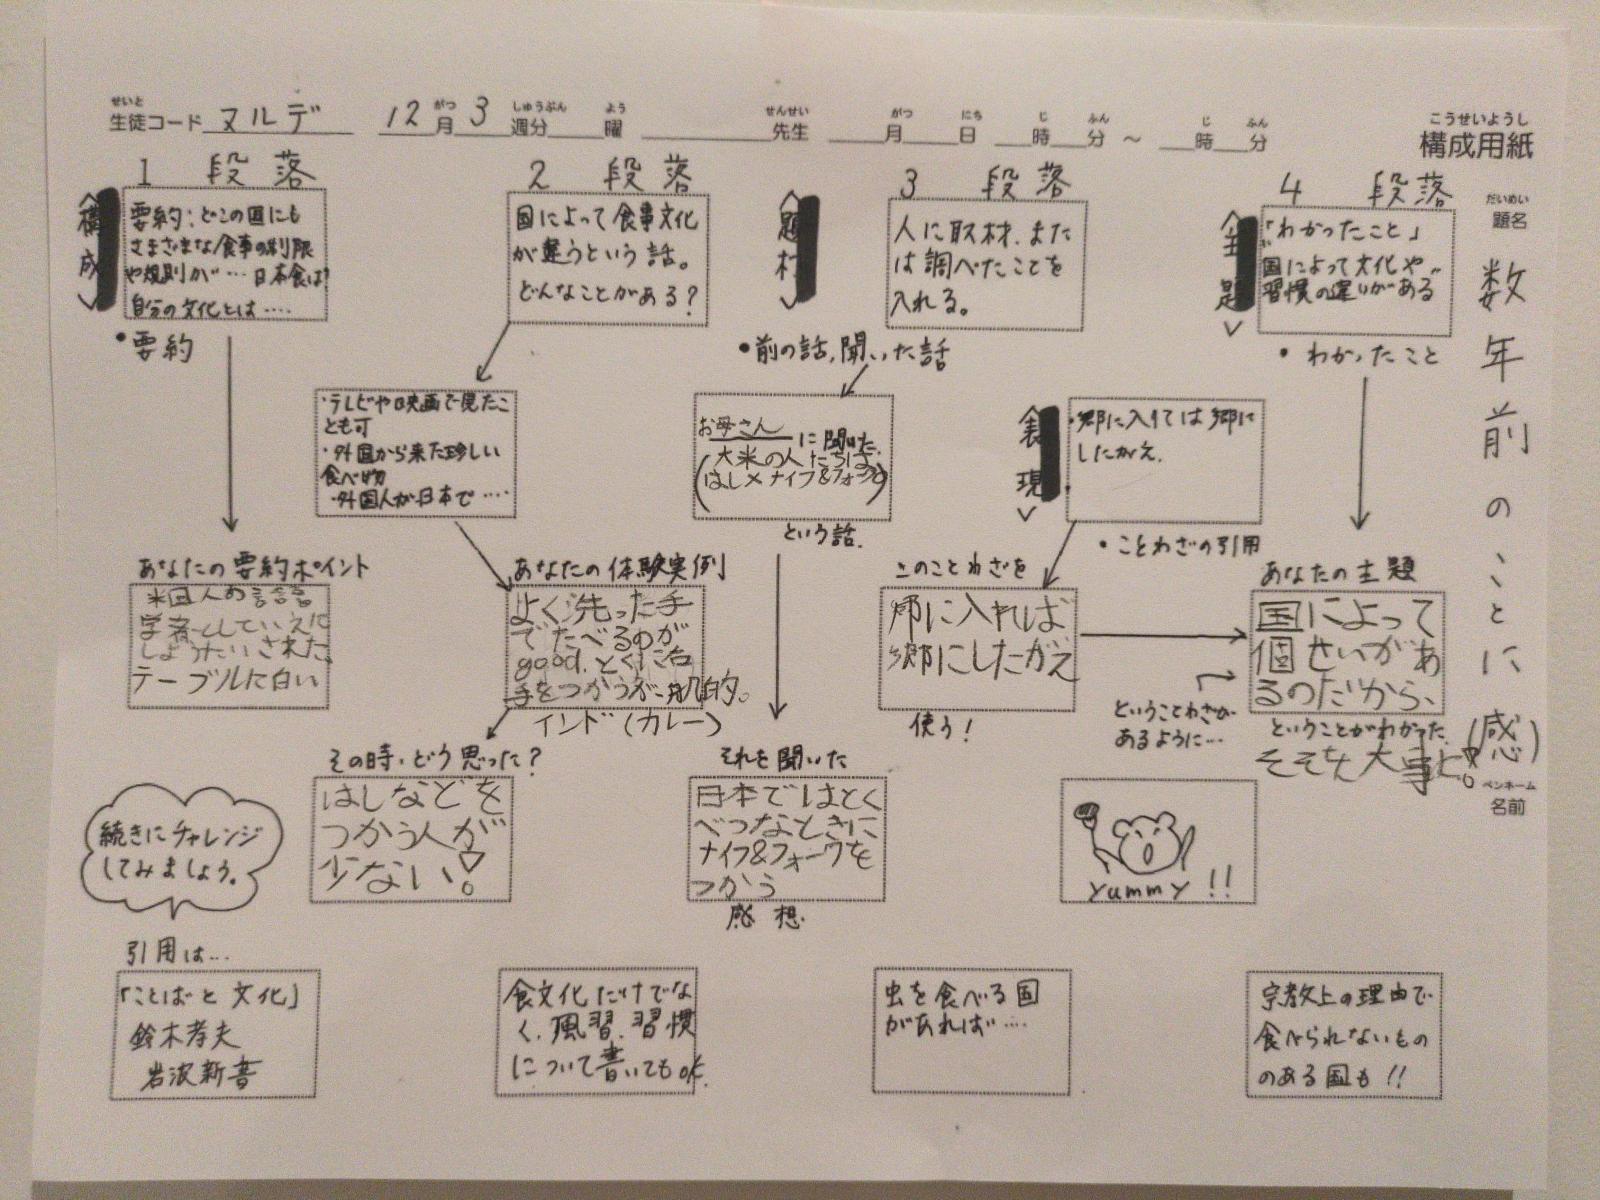 せいと がつ しゅうぶん よう せんせい がつ にち じ ふん じ ふん
生徒コード ヌルデ 12月3週分 曜 先生 月 日 時 分 ～ 時 分
こうせいようし
構成用紙
だいめい
題名
数年前のことに(感)
ペンネーム
名前
1 段落
〈構成〉
要約：どこの国にも
さまざまな食事の制限
や規則が…日本食は?
自分の文化とは….
•要約
あなたの要約ポイント
米国人の言語
学者としていえに
しょうたいされた。
テーブルに白い
2 段落
国によって食事文化
が違うという話。
どんなことがある?
・テレビや映画で見たこ
とも可
・外国から来た珍しい
食べ物
・外国人が日本で….
あなたの体験実例
よく洗った手
でたべるのが
good.とくに右
手をつかうが一般的。
インド(カレー)
その時、どう思った?
はしなどを
つかう人が
少ない!
3 段落
〈題材〉
人に取材、また
は調べたことを
入れる。
•前の話,聞いた話
お母さん
に聞いた
(大米の人たちは、
はし×ナイフ&フォーク)
という話.
それを聞いた
日本ではとく
べつなときに
ナイフ&フォークを
つかう
感想.
4 段落
〈主題〉
「わかったこと」
国によって文化や
習慣の違いがある
• わかったこと
〈表現〉
・郷に入りては郷に
したがえ.
• ことわざの引用
このことわざを
郷に入れば
郷にしたがえ
使う!
ということわざが
あるように…
あなたの主題
国によって
個せいがあ
るのだから、
ということがわかった.
大事
yummy !!
続きにチャレンジ
してみましょう。
引用は…
「ことばと文化」
鈴木孝夫
岩波新書
食文化だけでな
く、風習、習慣
について書いてもOK.
虫を食べる国
があれば….
宗教上の理由で
食べられないもの
のある国も!!